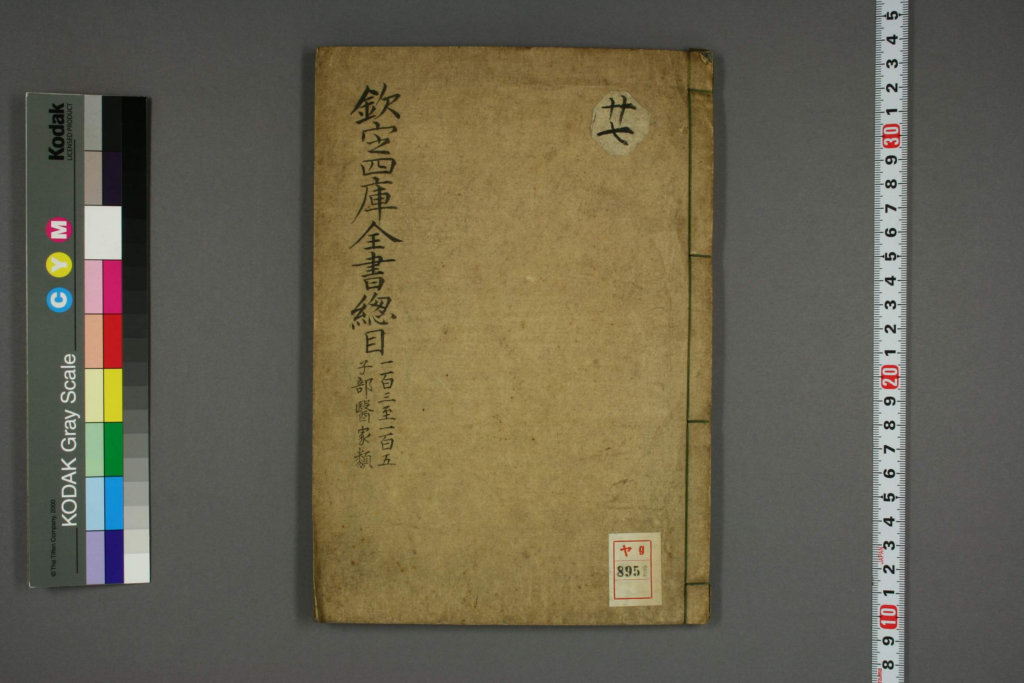 欽定四庫全書總目
一百三至一百五
子部醫家類
廿七
ヤ9
895
Kodak
LICENSED PRODUCT
KODAK Gray Scale
C Y M
© The Tiffen Company, 2000
5
4
3
2
1
30
9
8
7
6
5
4
3
2
1
20
9
8
7
6
5
4
3
2
1
10
9
8